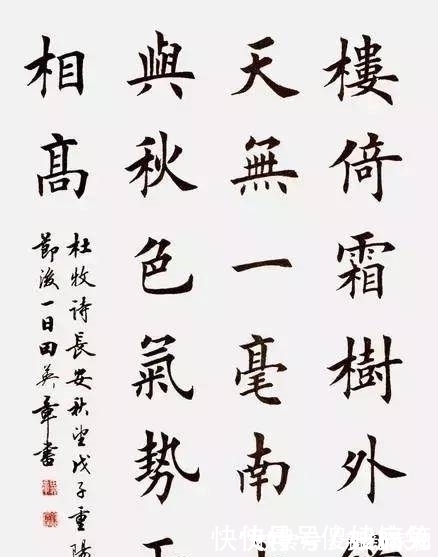 樓倚霜樹外
天無一毫南
與秋色氣勢
相髙
杜牧诗長安秋望戊子重陽
節後一日田英章書